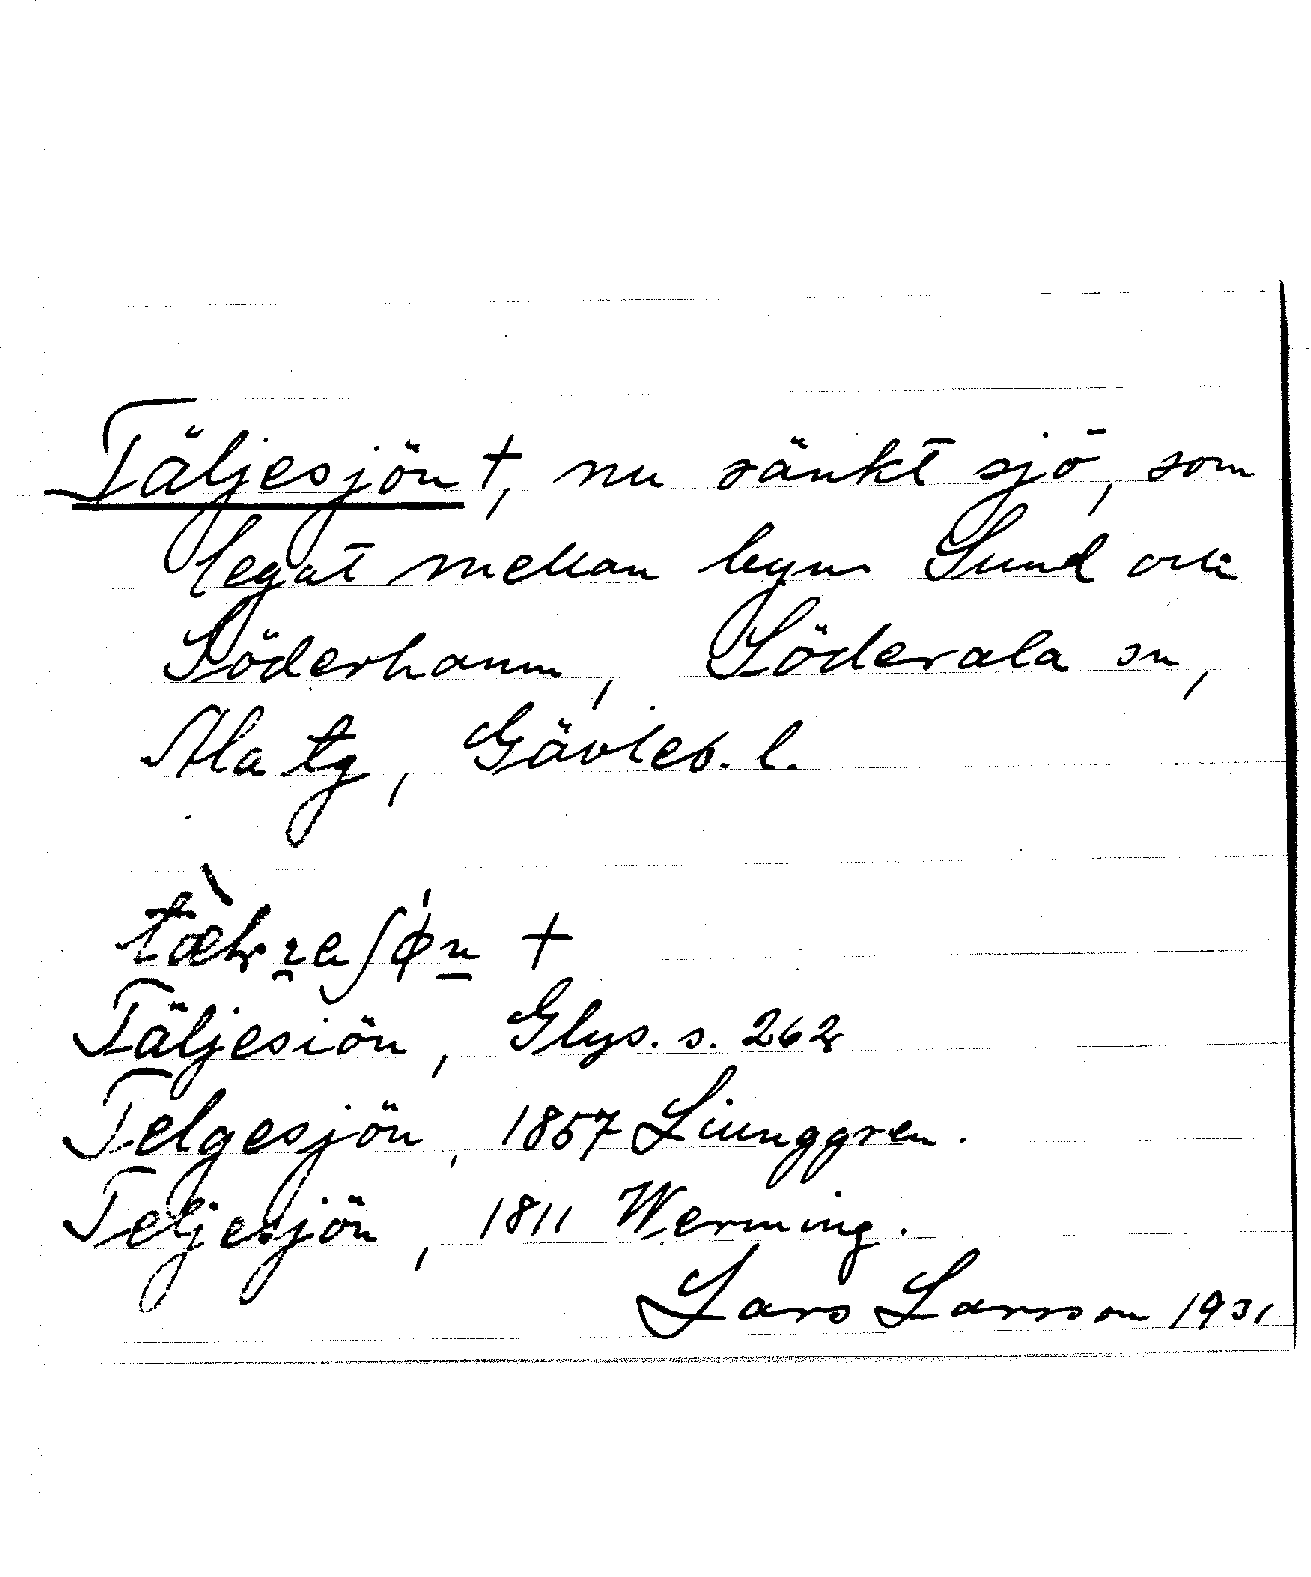 Täljesjön †, nu sänkt sjö, som
legat mellan byn Sund och
Söderhamn, Söderala sn,
Ala tg, Gävleb. l.
†
Täljesiön, Glys. s. 262
Telgesjön, 1857 Liunggren.
Teljesjön, 1811 Werming.
Lars Larsson 1931